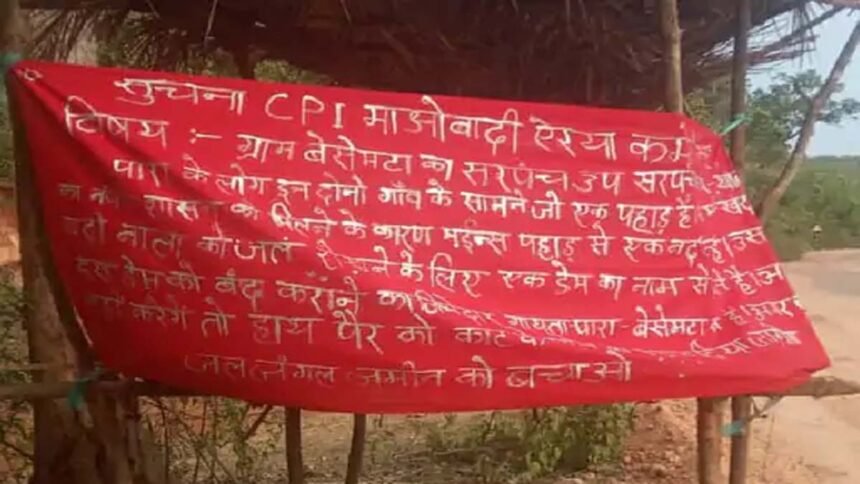 सुचना CPI माओवादी ऐरया कमे
विषय :- ग्राम बेसेमटा का सरपंच उप सरपंच
पारा के लोग इन दोनो गाँव के सामने जो एक पहाड़ है।
शासन को मिलने के कारण माईन्स पहाड़ से एक नद
नाला को जल के लिए एक डेम का नाम से ले है।
डेम को बंद कराने का गायतापारा - बेसेमटा
करेंगे तो हाथ पैर को काट
जल जंगल जमीन को बचाओ